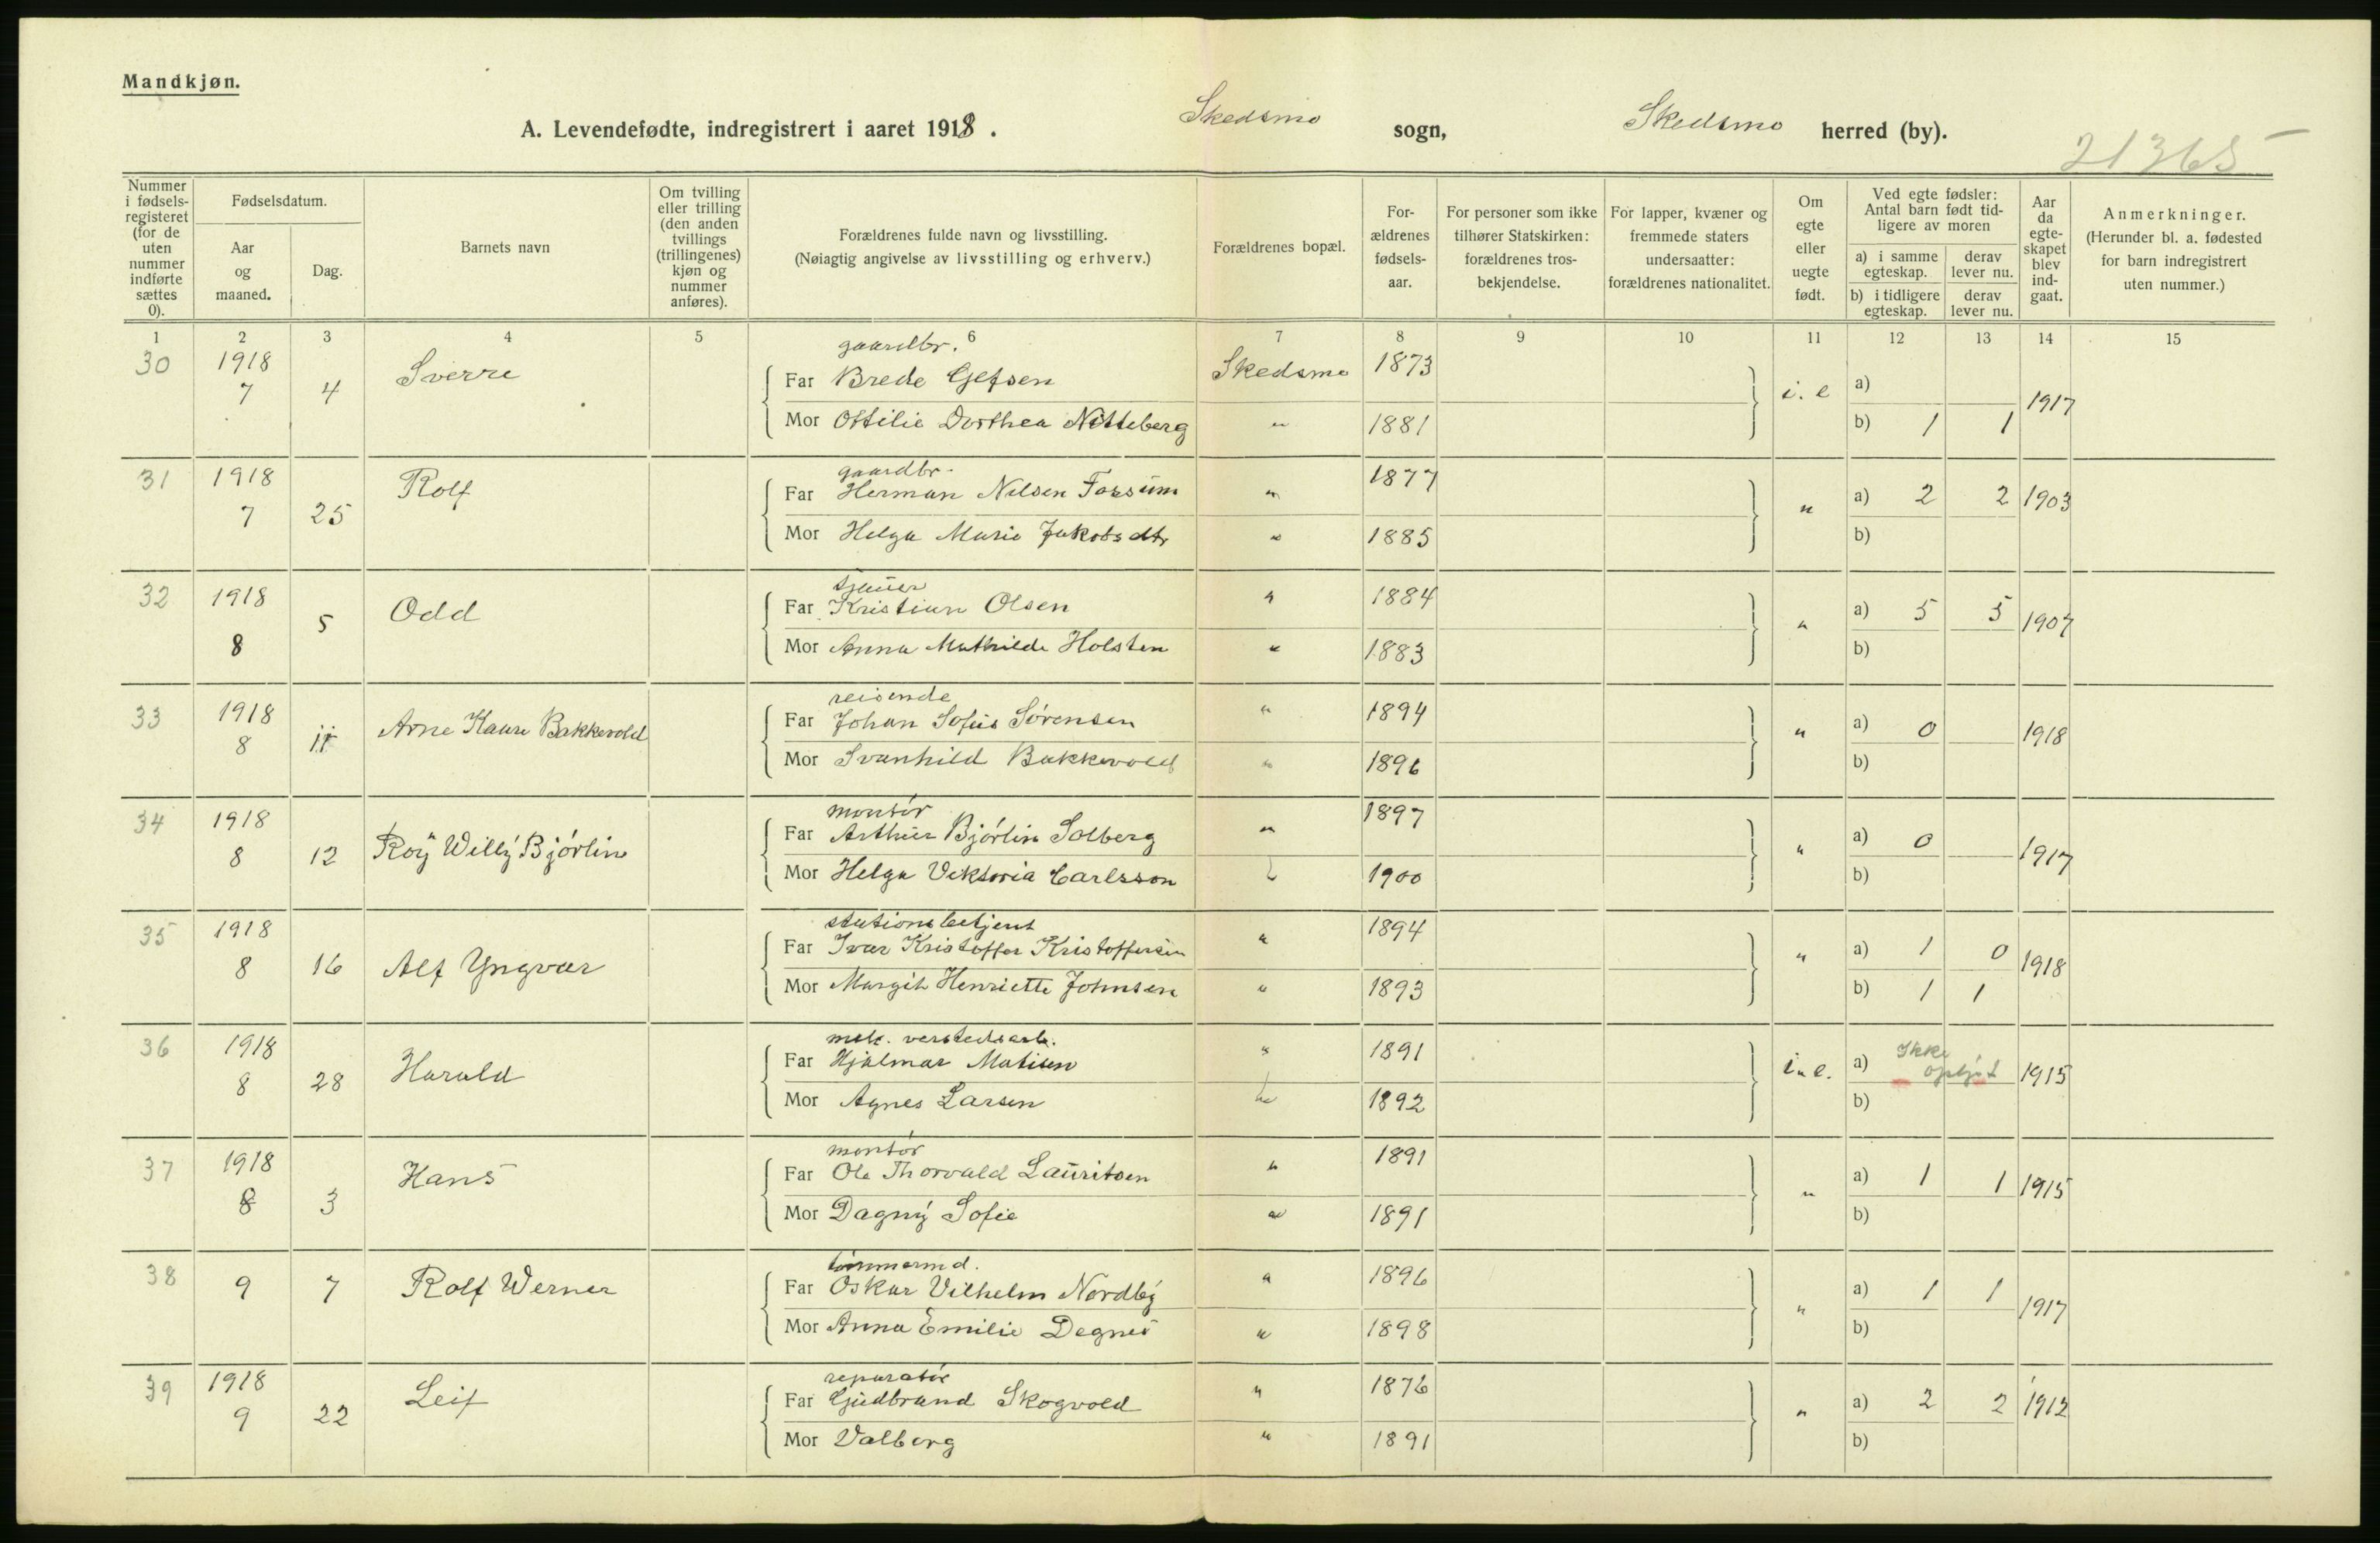 Mandkjøn.
A. Levendefødte, indregistrert i aaret 1918. Skedsmo sogn, Skedsmo herred (by).
21365
Nummer i fødselsregisteret (for de uten nummer indførte sættes 0).
Fødselsdatum.
Aar og maaned.
Dag.
Barnets navn
Om tvilling eller trilling (den anden tvillings (trillingenes) kjøn og nummer anføres).
Forældrenes fulde navn og livsstilling.
(Nøiagtig angivelse av livsstilling og erhverv.)
Forældrenes bopæl.
Forældrenes fødselsaar.
For personer som ikke tilhører Statskirken: forældrenes trosbekjendelse.
For lapper, kvæner og fremmede staters undersaatter: forældrenes nationalitet.
Om egte eller uegte født.
Ved egte fødsler: Antal barn født tidligere av moren
a) i samme egteskap. derav lever nu.
b) i tidligere egteskap. derav lever nu.
Aar da egteskapet blev indgaat.
Anmerkninger.
(Herunder bl. a. fødested for barn indregistrert uten nummer.)
1 2 3 4 5 6 7 8 9 10 11 12 13 14 15
gaardbr.
30 1918 7 4 Sverre Far Brede Gjefsen Skedsmo 1873 i. e a) 1917
Mor Ottilie Dorthea Nitteberg " 1881 b) 1 1
gaardbr.
31 1918 7 25 Rolf Far Herman Nilsen Fossum " 1877 " a) 2 2 1903
Mor Helga Marie Jakobsdtr " 1885 b)
32 1918 8 5 Odd Far Kristian Olsen " 1884 " a) 5 5 1907
Mor Anna Mathilde Holsten " 1883 b)
reisende
33 1918 8 11 Arne Kaure Bakkevold Far Johan Sofus Sørensen " 1894 " a) 0 1918
Mor Svanhild Bakkevold " 1896 b)
montør
34 1918 8 12 Roy Willy Bjørlin Far Arthur Bjørlin Solberg " 1897 " a) 0 1917
Mor Helga Viktoria Carlsson " 1900 b)
stationsbetjent
35 1918 8 16 Alf Yngvar Far Ivar Kristoffer Kristoffersen " 1894 " a) 1 0 1918
Mor Margit Henriette Johnsen " 1893 b) 1 1
mek. verstedsarb.
36 1918 8 28 Harald Far Hjalmar Matisen " 1891 i. e. a) Ikke opgit 1915
Mor Agnes Larsen " 1892 b)
montør
37 1918 8 3 Hans Far Ole Thorvald Lauritsen " 1891 " a) 1 1 1915
Mor Dagny Sofie " 1891 b)
tømmermd.
38 9 7 Rolf Werner Far Oskar Vilhelm Nordby " 1896 " a) 1 1 1917
Mor Anna Emilie Degnes " 1898 b)
reparatør
39 1918 9 22 Leif Far Gudbrand Skogvold " 1876 " a) 2 2 1912
Mor Valborg " 1891 b)